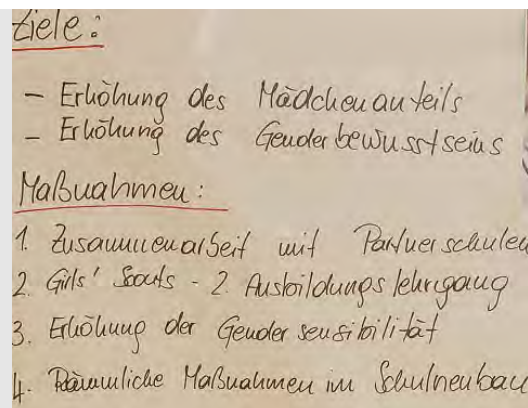 Ziele:
- Erhöhung des Mädchenanteils
- Erhöhung des Genderbewusstseins
Maßnahmen:
1. Zusammenarbeit mit Partnerschulen
2. Girls' Scouts - 2. Ausbildungslehrgang
3. Erhöhung der Gendersensibilität
4. Räumliche Maßnahmen im Schulneubau